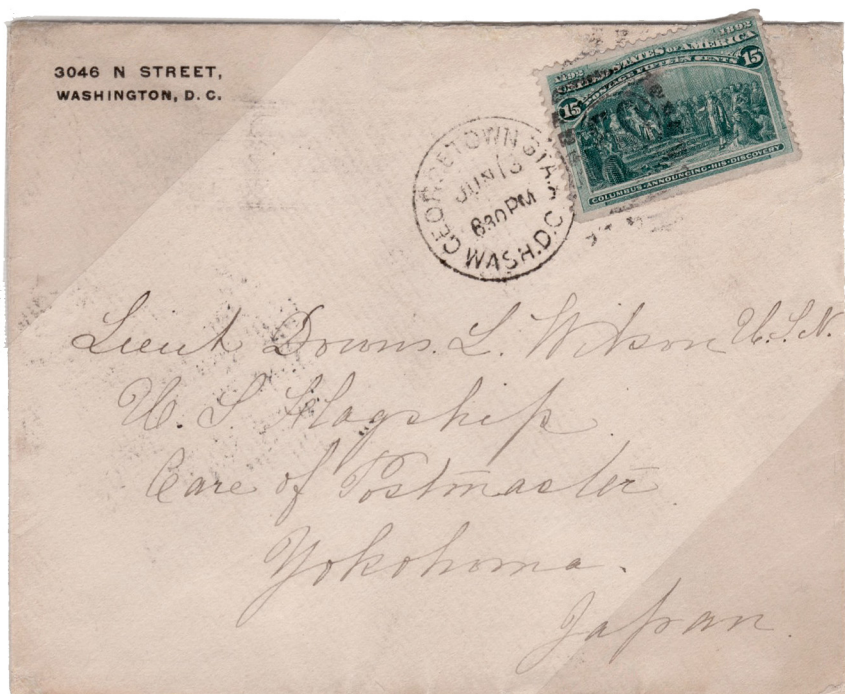 3046 N STREET,
WASHINGTON, D. C.
GEORGETOWN STA.
JUN 13
630 PM
WASH. D.C.
1492 1892
UNITED STATES OF AMERICA
POSTAGE FIFTEEN CENTS
15 15
COLUMBUS ANNOUNCING HIS DISCOVERY
Lieut Downs. L. Wilson U.S.N.
U. S Flagship
Care of Postmaster
Yokohoma.
Japan.